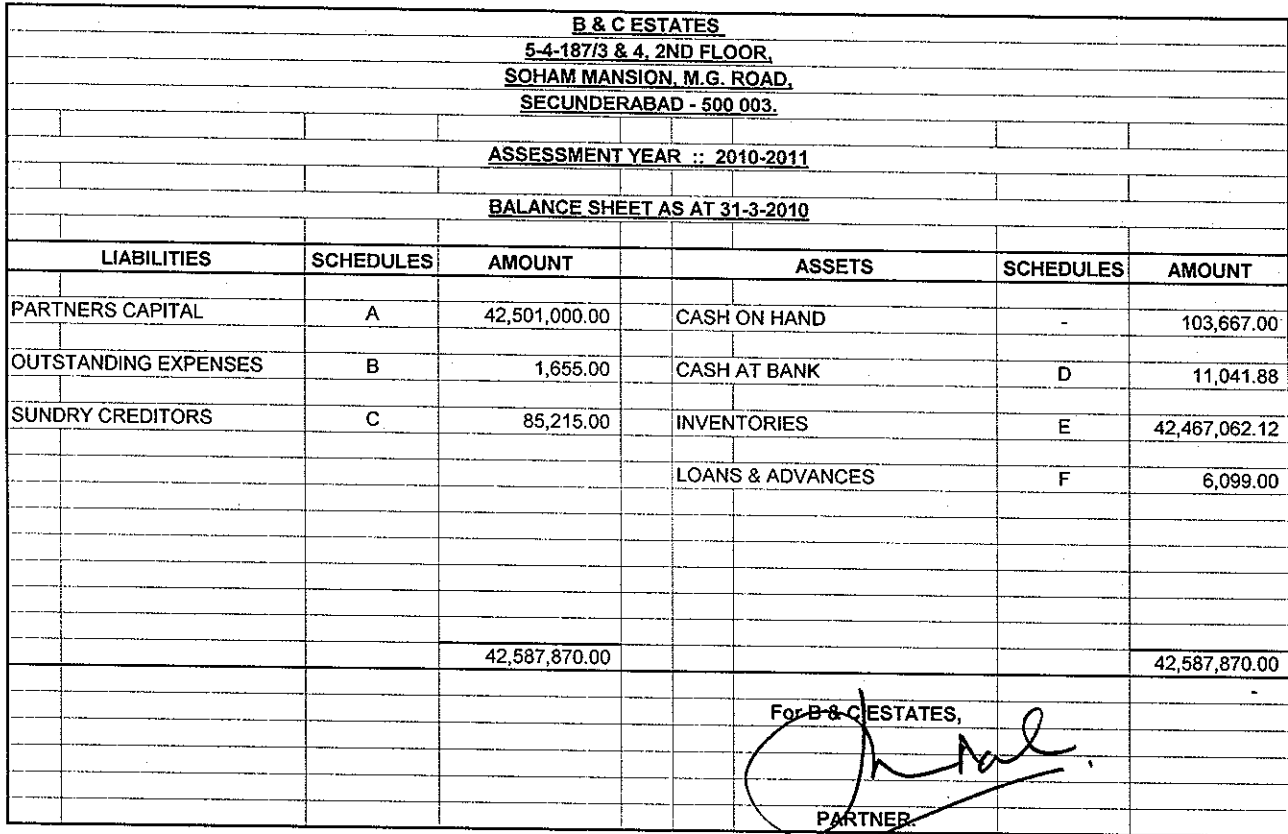 B & C ESTATES
5-4-187/3 & 4, 2ND FLOOR,
SOHAM MANSION, M.G. ROAD,
SECUNDERABAD - 500 003.
ASSESSMENT YEAR :: 2010-2011
BALANCE SHEET AS AT 31-3-2010
LIABILITIES SCHEDULES AMOUNT ASSETS SCHEDULES AMOUNT
PARTNERS CAPITAL A 42,501,000.00 CASH ON HAND - 103,667.00
OUTSTANDING EXPENSES B 1,655.00 CASH AT BANK D 11,041.88
SUNDRY CREDITORS C 85,215.00 INVENTORIES E 42,467,062.12
LOANS & ADVANCES F 6,099.00
42,587,870.00 42,587,870.00
-
For B & C ESTATES,
PARTNER.